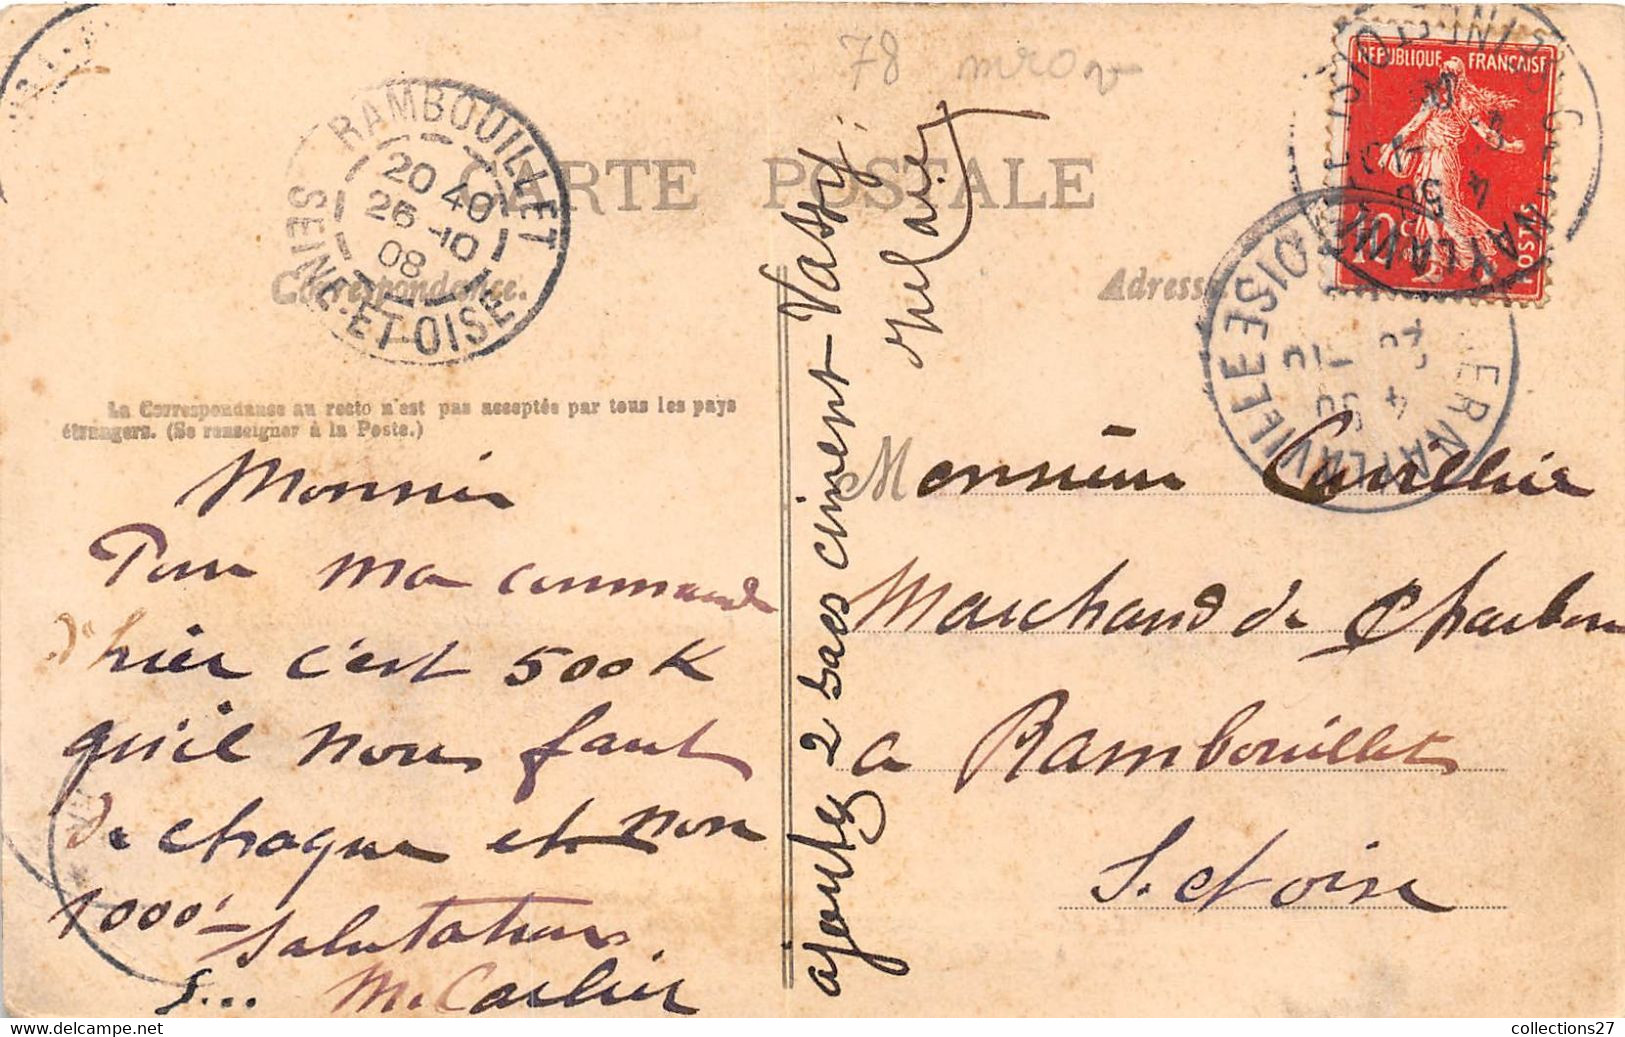 78
RAMBOUILLET
20 40
26 -10
08
SEINE-ET-OISE
CARTE POSTALE
Correspondance.
Adresse
REPUBLIQUE FRANÇAISE
10c
POSTES
La Correspondance au recto n'est pas acceptée par tous les pays
étrangers. (Se renseigner à la Poste.)
Monsieur
Pour ma commande
d'hier c'est 500 K
qu'il nous faut
de chaque et non
1000 -
Salutations
S... M. Carlier
ajoutez 2 sacs ciment-Vassy
Monsieur Cuvellier
Marchand de Charbon
a Rambouillet
S. et oise
collections27